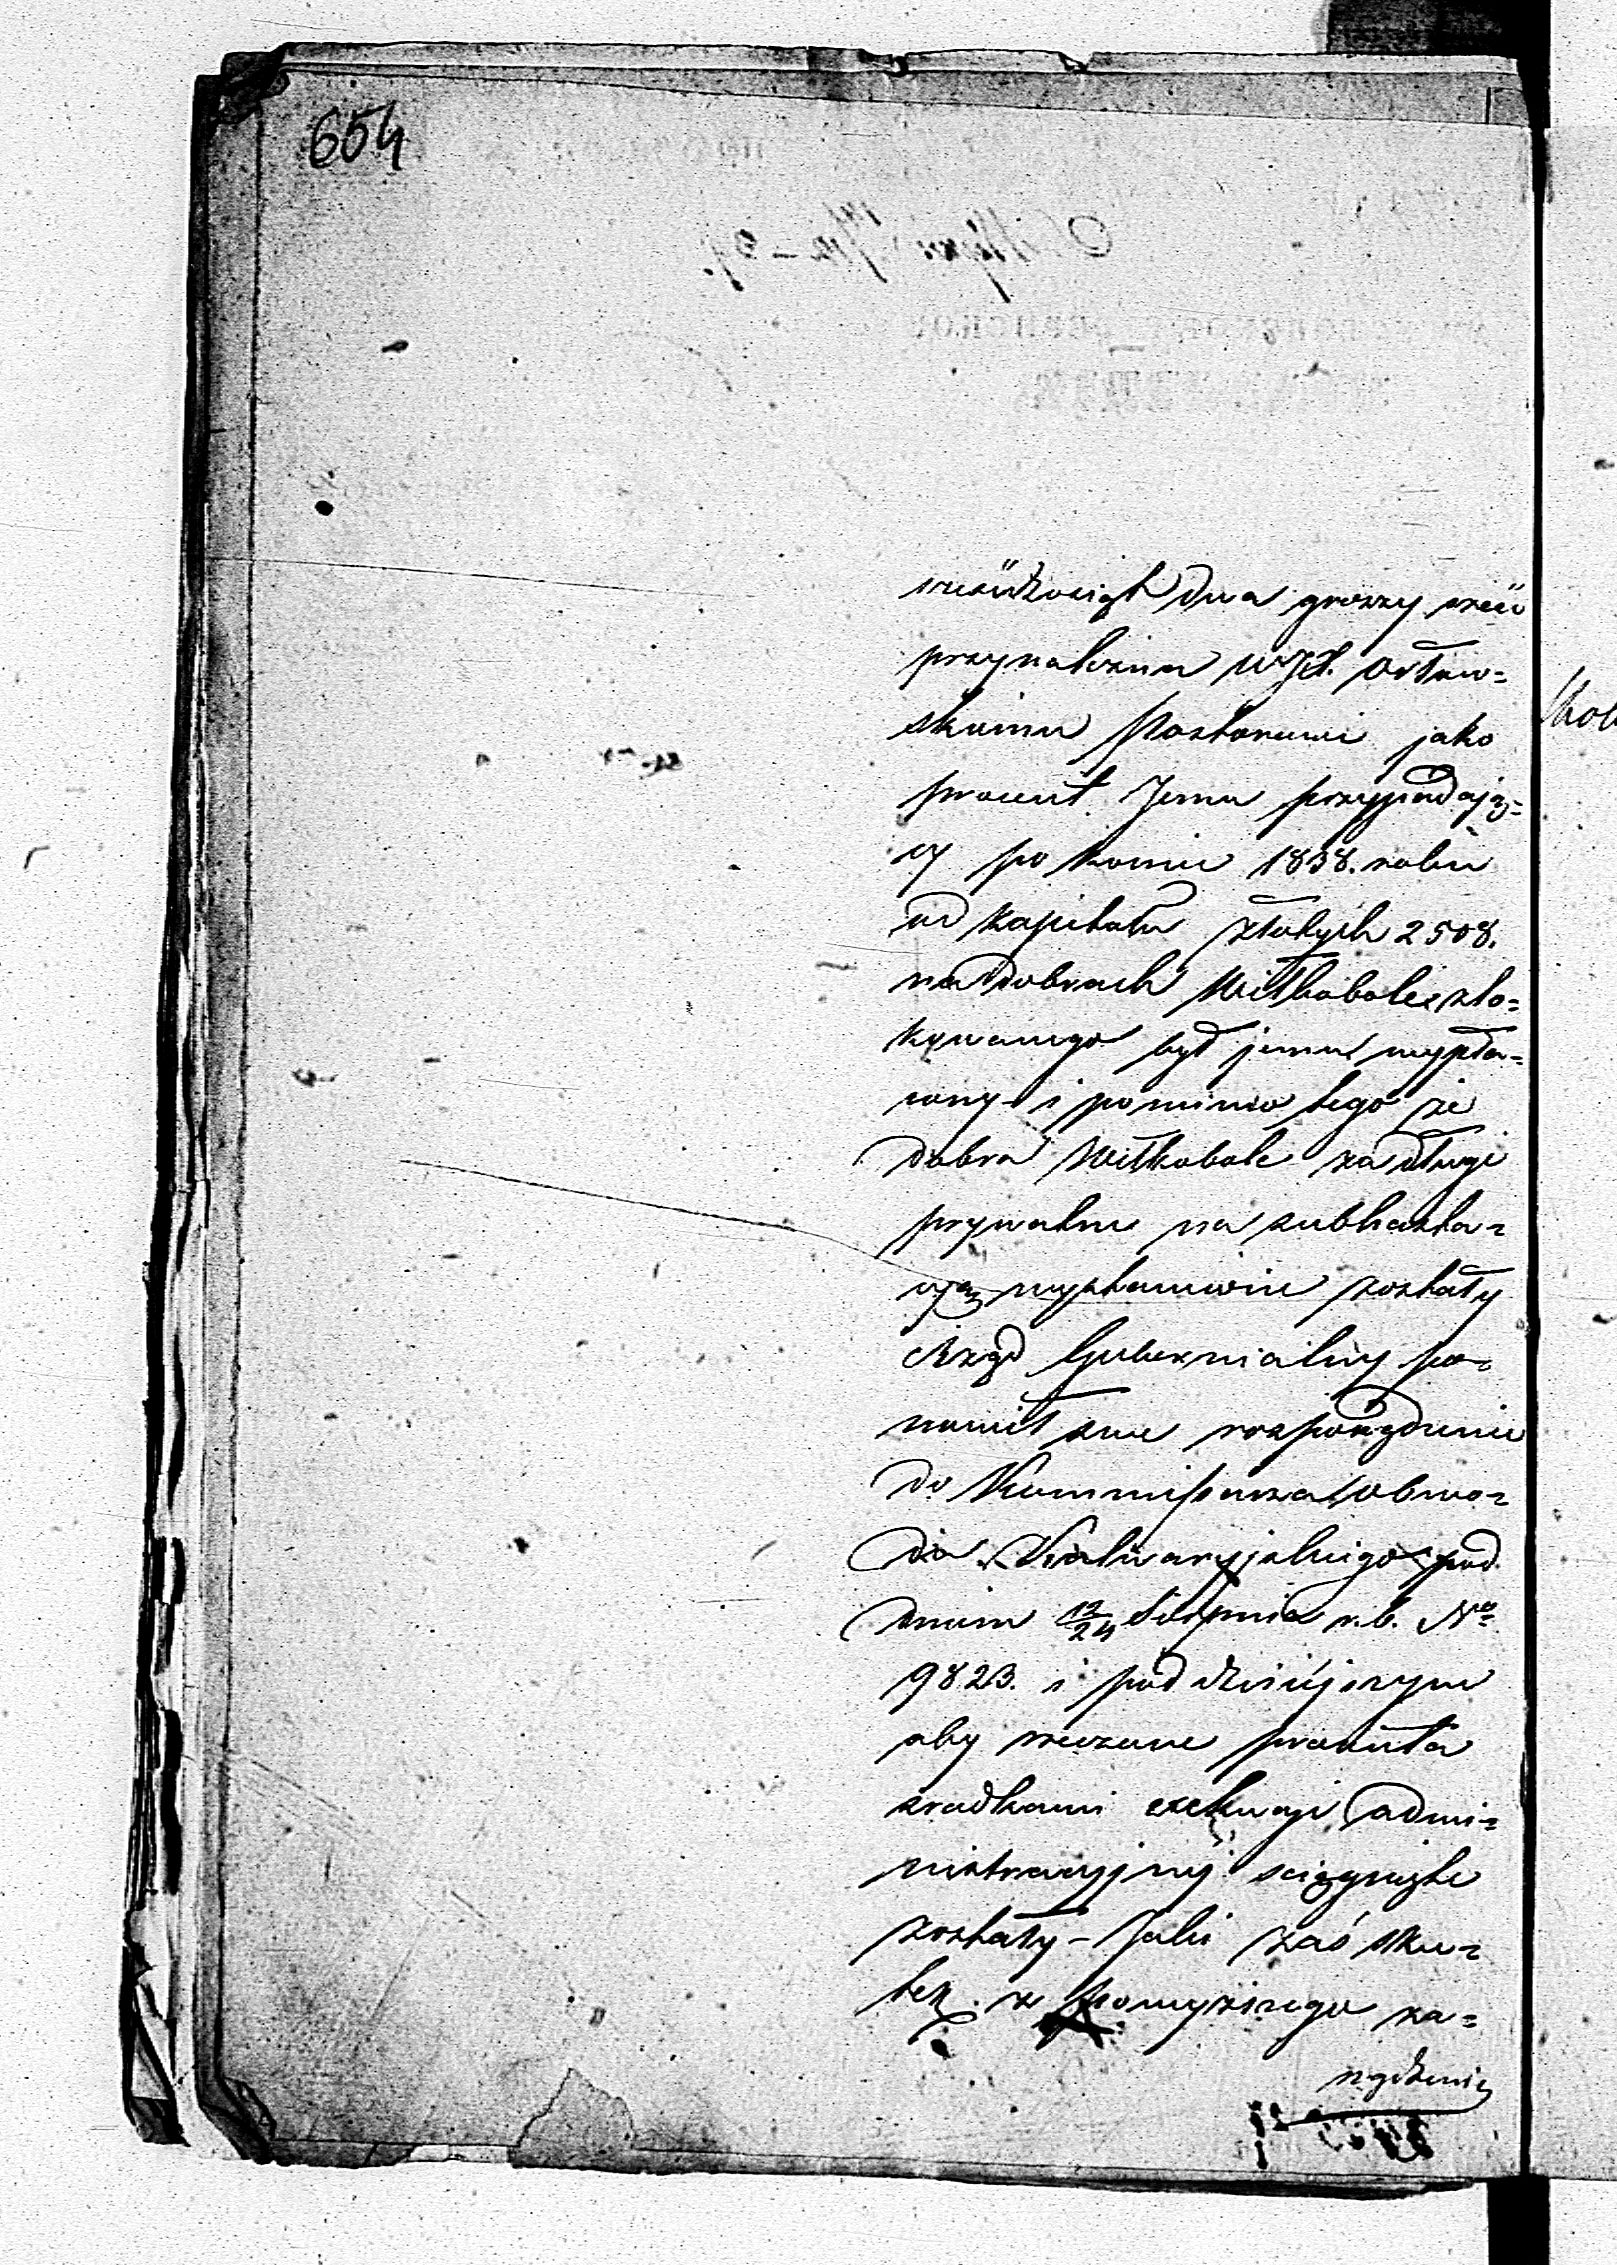 654
sześćdziesiąt dwa groszy sześć
przynależna WJX. Ostrow=
skiemu Pastorowi jako
procent Jemu przypadają=
cy po koniec 1838. roku
od kapitału złotych 2508.
na dobrach Witkobole zlo=
kowanego był jemu wypła=
cony i pomimo tego że
dobra Witkobole za długi
prywatne na subhasta=
cyą wystawione zostały
Rząd Gubernialny po=
nowił swe rozporządzenie
do Kommissarza Obwo=
du Kalwaryjskiego pod
dniem 12/24 Sierpnia r.b. No
9823. i pod dzisiejszym
aby rzeczone procenta
srodkami exekucyi admi=
nistracyjnej sciągnięte
zostały – Jaki zaś sku=
tek z powyższego za=
rządzenia